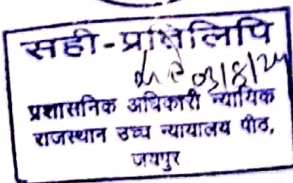 सही-प्रतिलिपि
03/8/24
प्रशासनिक अधिकारी न्यायिक
राजस्थान उच्च न्यायालय पीठ,
जयपुर